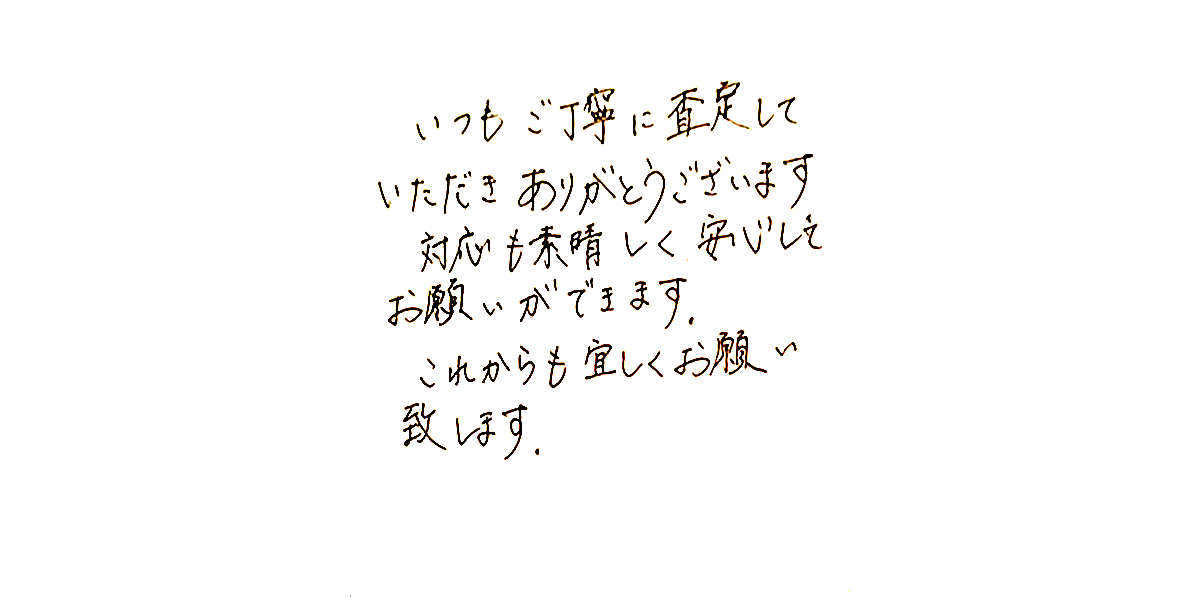 いつもご丁寧に査定して
いただきありがとうございます
対応も素晴しく安心して
お願いができます.
これからも宜しくお願い
致します.